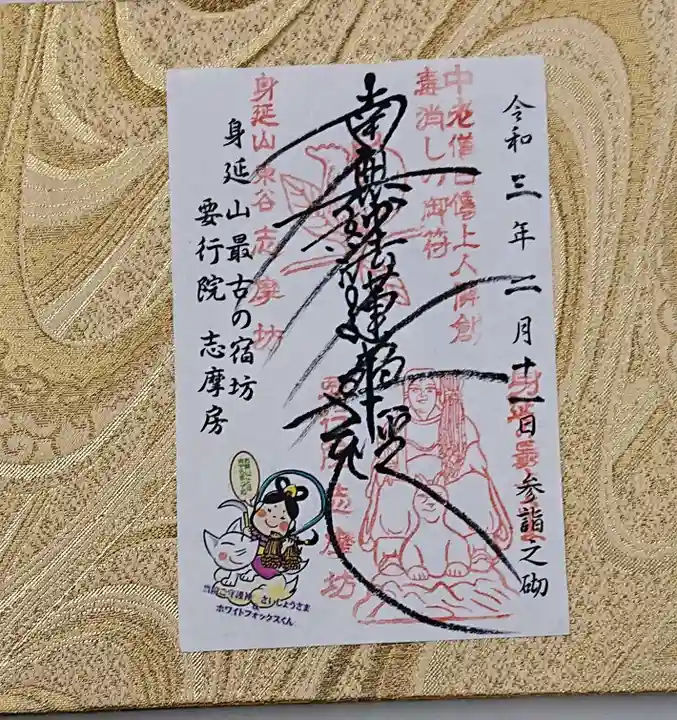 令和三年二月十一日 参詣之砌
中老僧日傳上人開創
毒消しの御符
南無妙法蓮華経
身延山東谷 志摩坊
身延山最古の宿坊
要行院 志摩房
志摩坊
さいじょうさま
ホワイトフォックスくん